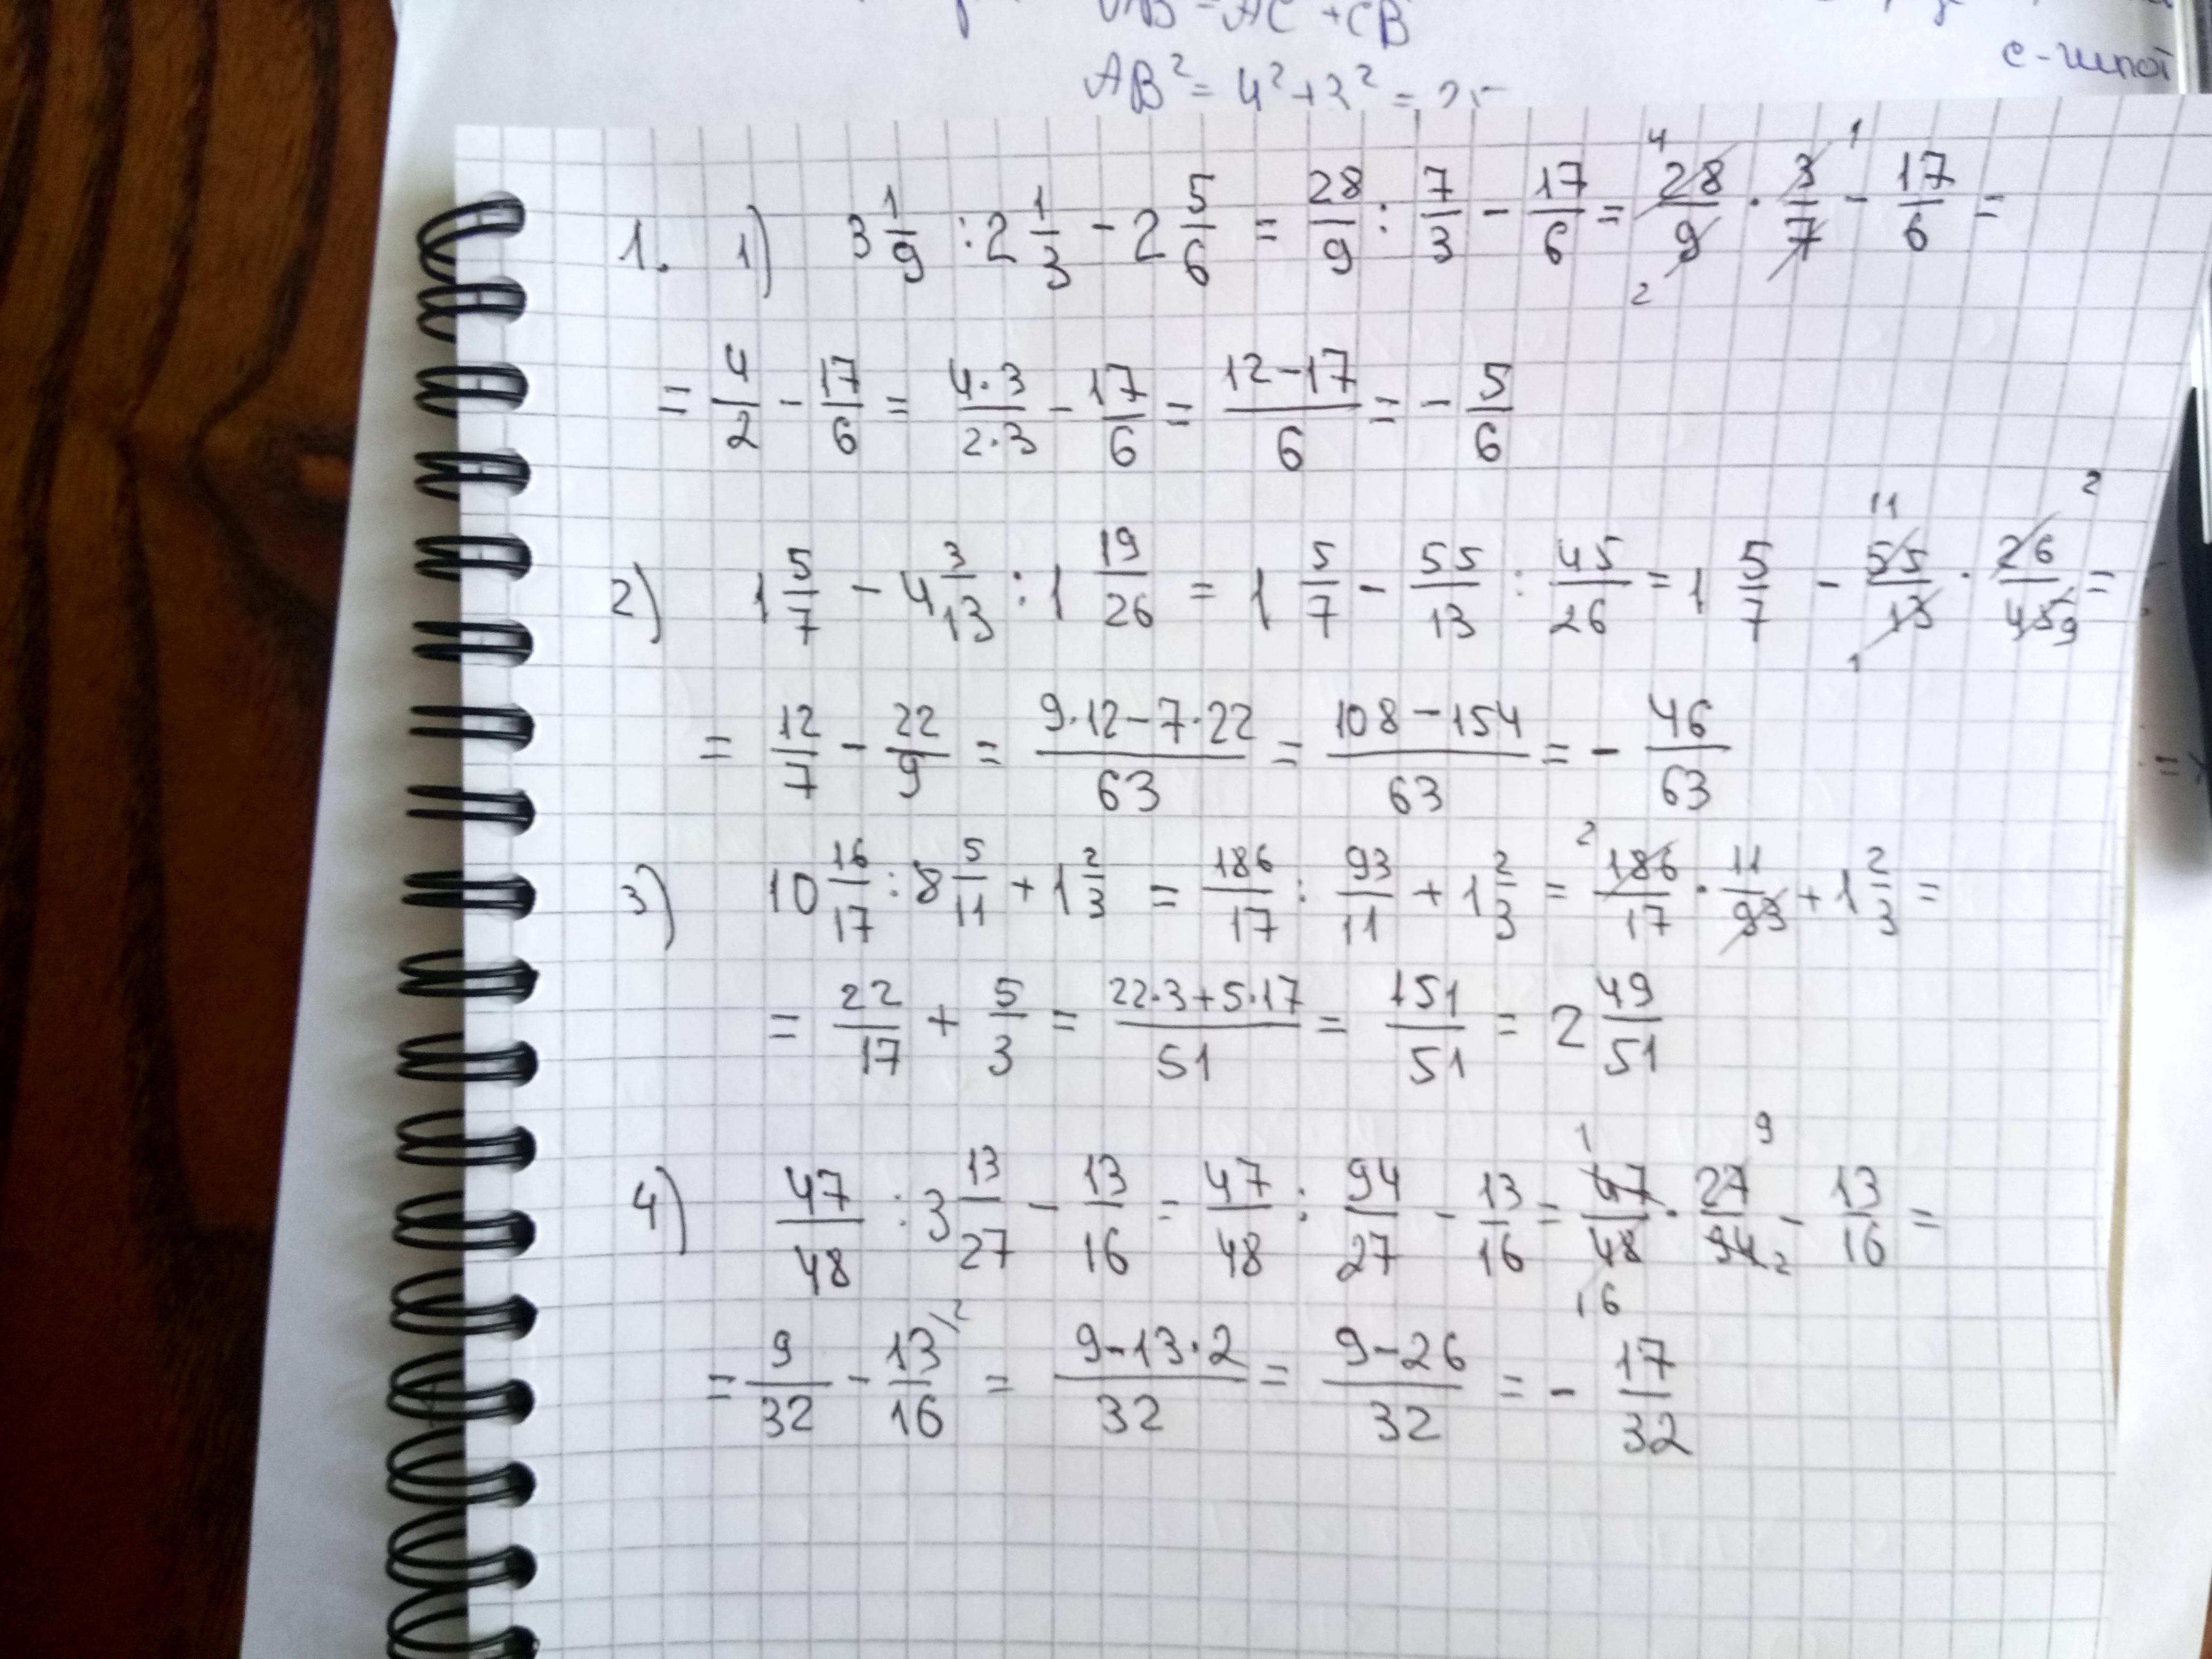 AB = AC + CB
AB² = 4² + 3² = 25
1. 1) 3 1/9 : 2 1/3 - 2 5/6 = 28/9 : 7/3 - 17/6 = 28/9 · 3/7 - 17/6 =
= 4/2 - 17/6 = 4·3/2·3 - 17/6 = 12-17/6 = - 5/6
2) 1 5/7 - 4 3/13 : 1 19/26 = 1 5/7 - 55/13 : 45/26 = 1 5/7 - 55/13 · 26/45 =
= 12/7 - 22/9 = 9·12-7·22/63 = 108-154/63 = - 46/63
3) 10 16/17 : 8 5/11 + 1 2/3 = 186/17 : 93/11 + 1 2/3 = 186/17 · 11/93 + 1 2/3 =
= 22/17 + 5/3 = 22·3+5·17/51 = 151/51 = 2 49/51
4) 47/48 : 3 13/27 - 13/16 = 47/48 : 94/27 - 13/16 = 47/48 · 27/94 - 13/16 =
= 9/32 - 13/16 \2 = 9-13·2/32 = 9-26/32 = - 17/32